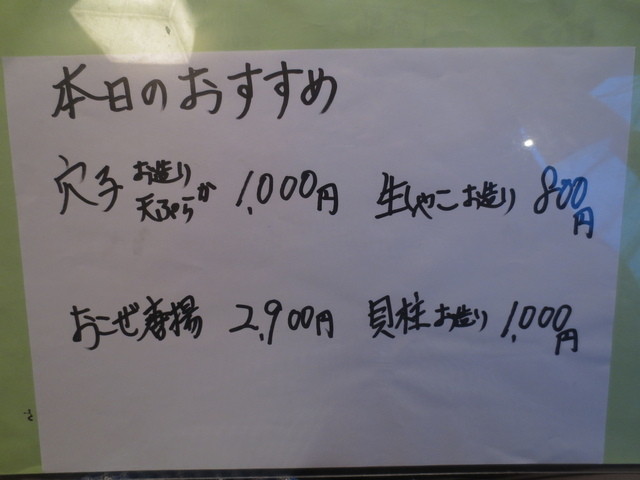 本日のおすすめ
穴子 お造りか天ぷら 1,000円
生しゃこお造り 800円
おこぜ唐揚 2,900円
貝柱お造り 1,000円